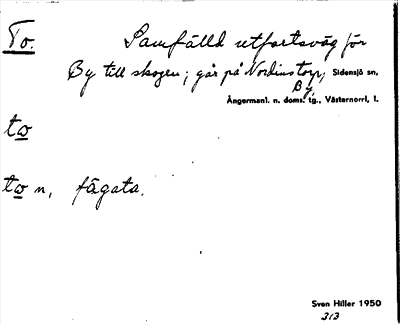 To.
Samfälld utfartsväg för
By till skogen; går på Nordinstorp, Sidensjö sn,
By.
Ångermanl. n. doms. tg., Västernorrl. l.
to
to n, fägata.
Sven Hiller 1950
313